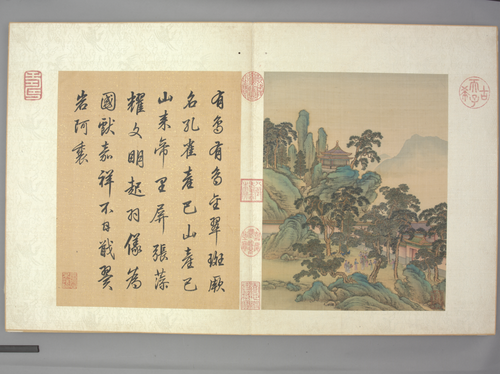 有鳥有鳥金翠斑厥
名孔雀產巴山產巴
山来帝里屏張藻
耀文明起羽儀為
國獻嘉祥不日戢翼
岩阿裏
古希天子